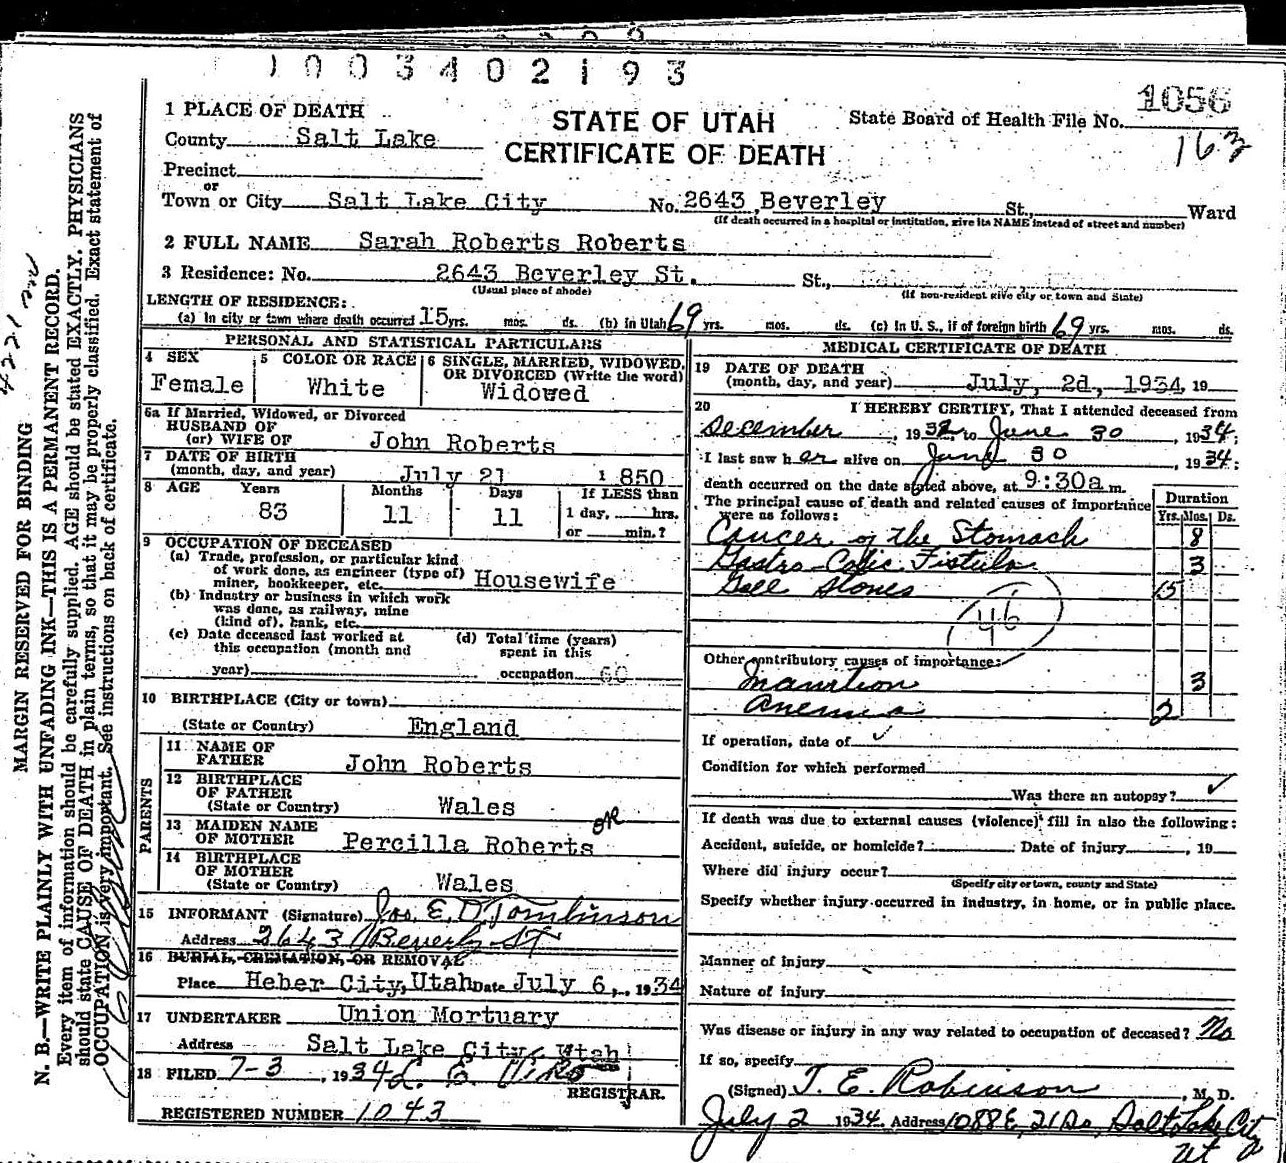 1003402193
1 PLACE OF DEATH
STATE OF UTAH
CERTIFICATE OF DEATH
State Board of Health File No. 1056
163
County Salt Lake
Precinct
or
Town or City Salt Lake City No. 2643 Beverley St., Ward
(If death occurred in a hospital or institution, give its NAME instead of street and number)
2 FULL NAME Sarah Roberts Roberts
3 Residence: No. 2643 Beverley St. St.,
(Usual place of abode) (If non-resident give city or town and State)
LENGTH OF RESIDENCE:
(a) In city or town where death occurred 15 yrs. mos. ds. (b) in Utah 69 yrs. mos. ds. (c) In U. S., if of foreign birth 69 yrs. mos. ds.
PERSONAL AND STATISTICAL PARTICULARS
4 SEX
Female
5 COLOR OR RACE
White
6 SINGLE, MARRIED, WIDOWED, OR DIVORCED (Write the word)
Widowed
6a If Married, Widowed, or Divorced
HUSBAND OF
(or) WIFE OF John Roberts
7 DATE OF BIRTH
(month, day, and year) July 21 1850
8 AGE Years Months Days If LESS than
83 11 11 1 day, hrs.
or min.?
9 OCCUPATION OF DECEASED
(a) Trade, profession, or particular kind
of work done, as engineer (type of)
miner, bookkeeper, etc. Housewife
(b) Industry or business in which work
was done, as railway, mine
(kind of), bank, etc.
(c) Date deceased last worked at
this occupation (month and
year)
(d) Total time (years)
spent in this
occupation 60
10 BIRTHPLACE (City or town)
(State or Country) England
PARENTS
11 NAME OF
FATHER John Roberts
12 BIRTHPLACE
OF FATHER
(State or Country) Wales
13 MAIDEN NAME
OF MOTHER Percilla Roberts
14 BIRTHPLACE
OF MOTHER
(State or Country) Wales
15 INFORMANT (Signature) Jos. E. D. Tomlinson
Address 2643 Beverly St
16 BURIAL, CREMATION, OR REMOVAL
Place Heber City, Utah Date July 6, 1934
17 UNDERTAKER Union Mortuary
Address Salt Lake City, Utah
18 FILED 7-3, 1934
REGISTRAR.
REGISTERED NUMBER 1043
MEDICAL CERTIFICATE OF DEATH
19 DATE OF DEATH
(month, day, and year) July, 2d, 1934, 19
20 I HEREBY CERTIFY, That I attended deceased from
December, 1932 to June 30, 1934;
I last saw her alive on June 30, 1934;
death occurred on the date stated above, at 9:30a m.
The principal cause of death and related causes of importance
were as follows:
Duration
Yrs. Mos. Ds.
Cancer of the Stomach 8
Gastro-Colic Fistula 3
Gall Stones 15
46
Other contributory causes of importance:
Inanition 3
Anemia 2
If operation, date of ✓
Condition for which performed
Was there an autopsy? ✓
If death was due to external causes (violence) fill in also the following:
Accident, suicide, or homicide? Date of injury, 19
Where did injury occur?
(Specify city or town, county and State)
Specify whether injury occurred in industry, in home, or in public place.
Manner of injury
Nature of injury
Was disease or injury in any way related to occupation of deceased? No
If so, specify
(Signed) T. E. Robinson, M. D.
July 2 1934. Address 1088 E, 21 So, Salt Lake City
Ut
MARGIN RESERVED FOR BINDING
N. B.—WRITE PLAINLY WITH UNFADING INK—THIS IS A PERMANENT RECORD.
Every item of information should be carefully supplied. AGE should be stated EXACTLY. PHYSICIANS
should state CAUSE OF DEATH in plain terms, so that it may be properly classified. Exact statement of
OCCUPATION is very important. See instructions on back of certificate.